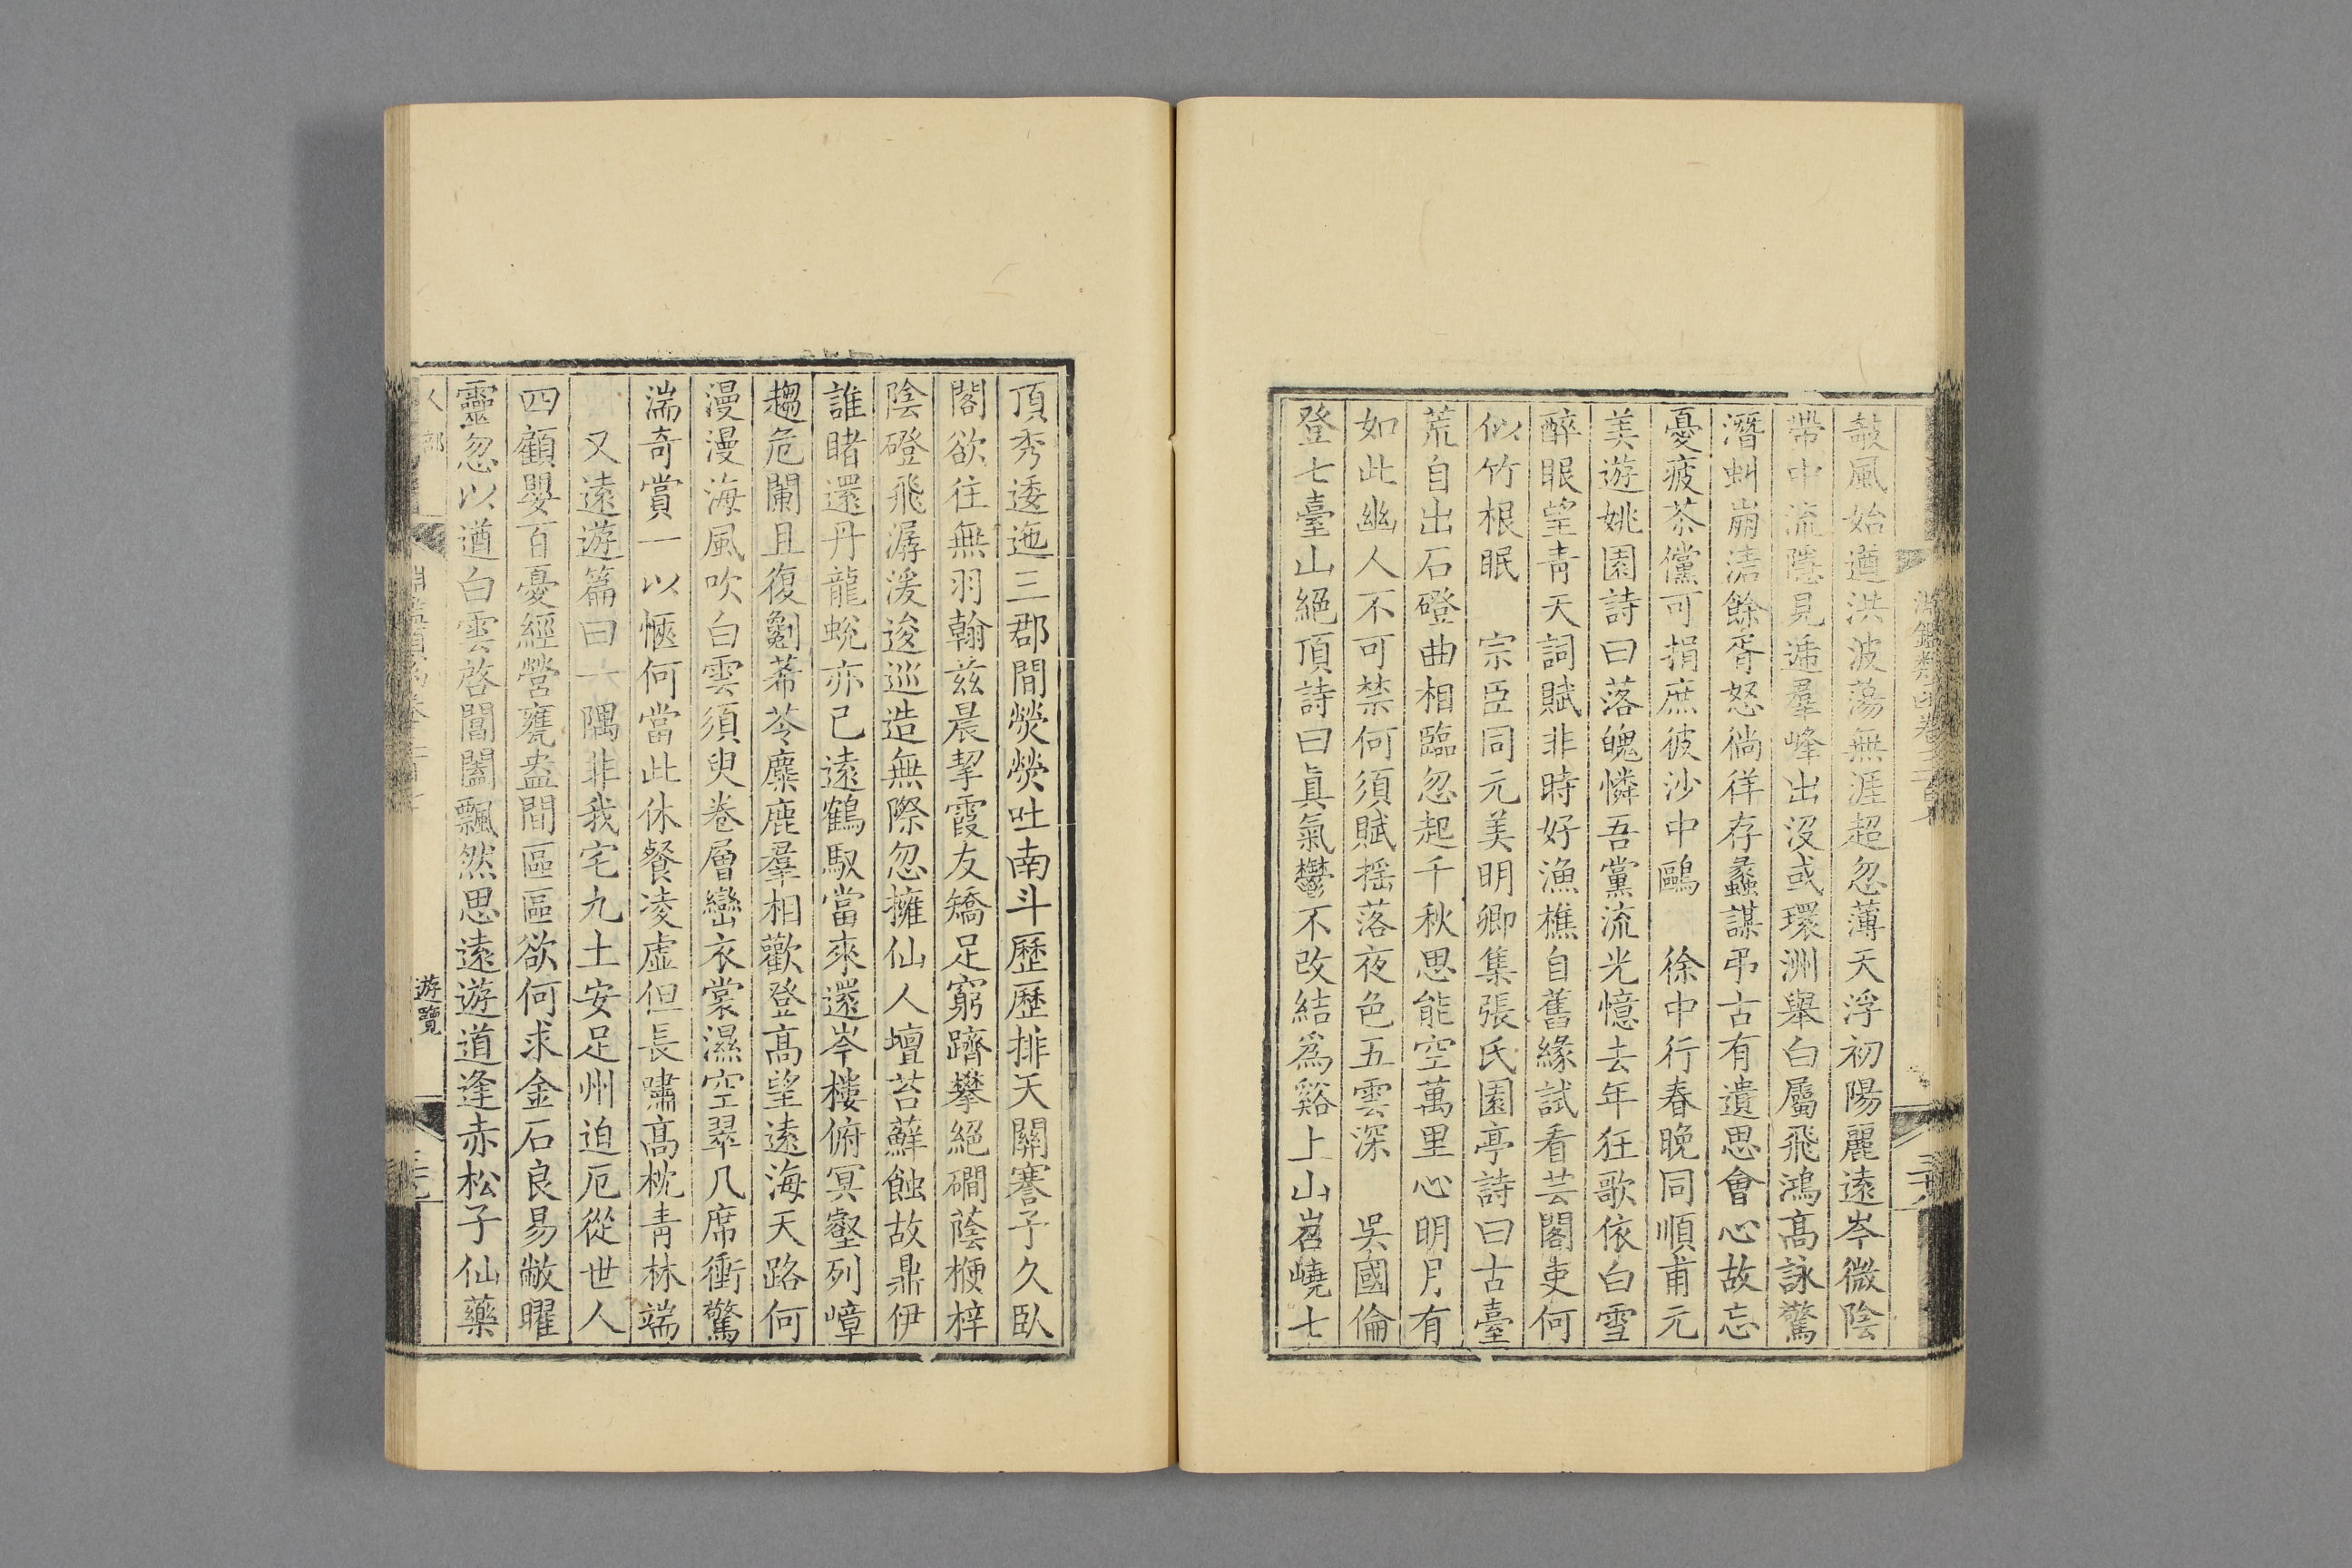 敲風始遒洪波蕩無涯超忽薄天浮初陽麗遠岑微陰
帶中流隱見遞羣峰出沒或環洲舉白屬飛鴻高詠驚
潛虯崩濤餘胥怒徜徉存蠡謀弔古有遺思會心故忘
憂疲茶儻可捐庶彼沙中鷗　徐中行春晚同順甫元
美遊姚園詩曰落魄憐吾黨流光憶去年狂歌依白雪
醉眼望青天詞賦非時好漁樵自舊緣試看芸閣吏何
似竹根眠　宗臣同元美明卿集張氏園亭詩曰古臺
荒自出石磴曲相臨忽起千秋思能空萬里心明月有
如此幽人不可禁何須賦搖落夜色五雲深　吳國倫
登七臺山絕頂詩曰眞氣鬱不改結爲谿上山岧嶢七
頂秀逶迤三郡間熒熒吐南斗歷歷排天關蹇予久臥
閣欲往無羽翰茲晨挈霞友矯足窮躋攀絕磵蔭楩梓
陰磴飛潺湲逡巡造無際忽擁仙人壇苔蘚蝕故鼎伊
誰睹還丹龍蛻亦已遠鶴馭當來還岑樓俯冥壑列嶂
趨危闌且復劚茯苓麋鹿羣相歡登高望遠海天路何
漫漫海風吹白雲須臾卷層巒衣裳濕空翠几席衝驚
湍奇賞一以愜何當此休餐凌虛但長嘯高枕青林端
又遠遊篇曰六隅非我宅九土安足州迫厄從世人
四顧嬰百憂經營甕盎間區區欲何求金石良易敝曜
靈忽以遒白雲啓閶闔飄然思遠遊道逢赤松子仙藥
人部
遊覽